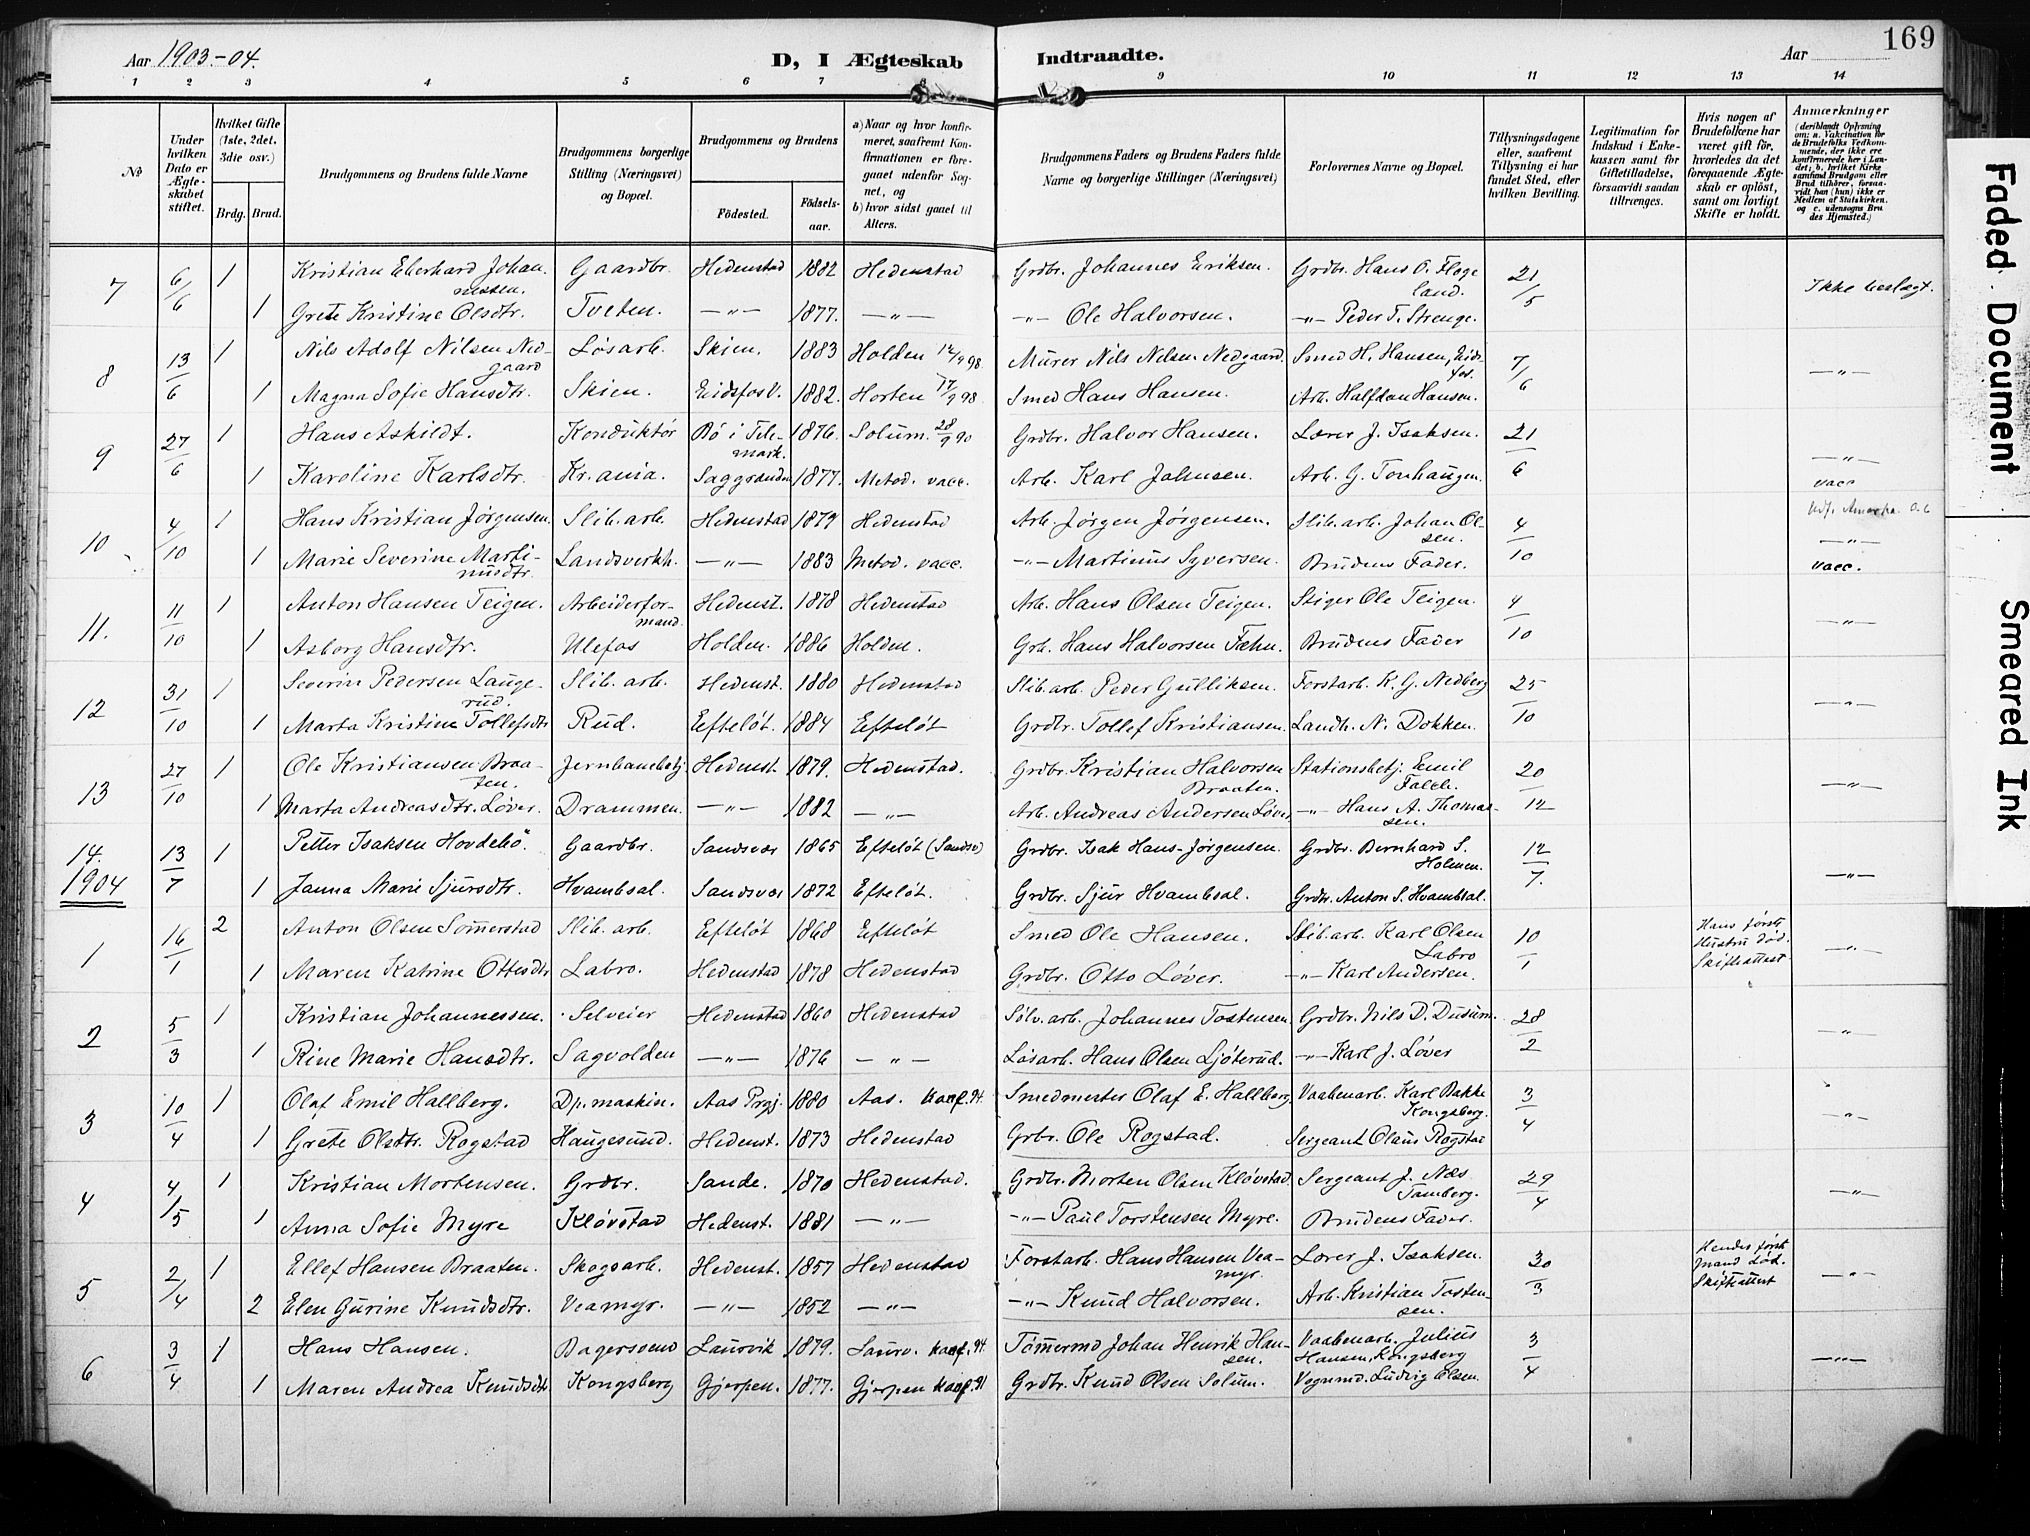 Aar 1903-04.
D, I Ægteskab Indtraadte.
Aar
169
1 2 3 4 5 6 7 8 9 10 11 12 13 14
No
Under hvilken Dato er Ægteskabet stiftet.
Hvilket Gifte (1ste, 2det, 3die osv.)
Brdg. Brud.
Brudgommens og Brudens fulde Navne
Brudgommens borgerlige Stilling (Næringsvei) og Bopæl.
Brudgommens og Brudens
Fødested.
Fødselsaar.
a) Naar og hvor konfirmeret, saafremt Konfirmationen er foregaaet udenfor Sognet, og
b) hvor sidst gaaet til Alters.
Brudgommens Faders og Brudens Faders fulde Navne og borgerlige Stillinger (Næringsvei)
Forlovernes Navne og Bopæl.
Tillysningsdagene eller, saafremt Tillysning ei har fundet Sted, efter hvilken Bevilling.
Legitimation for Indskud i Enkekassen samt for Giftetilladelse, forsaavidt saadan tiltrænges.
Hvis nogen af Brudefolkene har været gift før, hvorledes da det foregaaende Ægteskab er opløst, samt om lovligt Skifte er holdt.
Anmærkninger
(deriblandt Oplysning om: a. Vakcination for de Brudefolks Vedkommende, der ikke ere konfirmerede her i Landet; b. hvilket Kirkesamfund Brudgom eller Brud tilhører, forsaavidt han (hun) ikke er Medlem af Statskirken. og c. udensogns Brudes Hjemsted.)
7 6/6 1 Kristian Eberhard Johannessen. Gaardbr. Hedenstad 1882 Hedenstad Grdbr. Johannes Eriksen. Grdbr. Hans O. Flogeland. 21/5 Ikke beslægt.
1 Grete Kristine Olsdtr. Tveten. —"— 1877. —"— —"— Ole Halvorsen. —"— Peder T. Strenge.
8 13/6 1 Nils Adolf Nilsen Nedgaard Løsarb. Skien. 1883 Holden 12/9 98 Murer Nils Nilsen Nedgaard. Smed H. Hansen, Eidsfos. 7/6 —"—
1 Magna Sofie Hansdtr. Skien. Eidsfos V. 1882. Horten 17/9 98 Smed Hans Hansen. Arb. Halfdan Hansen.
9 27/6 1 Hans Askildt. Konduktør Bø i Telemark. 1876. Solum. 28/9 90 Grdbr. Halvor Hansen. Lærer J. Isaksen. 21/6 —"—
1 Karoline Karlsdtr. Kr.ania. Saggrenden 1877. Metod. vacc. Arb. Karl Johnsen. Arb. G. Tonhaugen. vacc
10 4/10 1 Hans Kristian Jørgensen. Slib.arb. Hedenstad 1879 Hedenstad Arb. Jørgen Jørgensen. Slib.arb. Johan Olsen. 4/10 —"—
1 Marie Severine Martinusdtr. Landsverkh. —"— 1883 Metod. vacc. —"— Martinus Syversen. Brudens Fader. vacc.
11. 11/10 1 Anton Hansen Teigen. Arbeiderformand. Hedenst. 1878 Hedenstad Arb. Hans Olsen Teigen. Stiger Ole Teigen. 4/10 —"—
1 Asborg Hansdtr. Ulefos Holden. 1886 Holden. Grb. Hans Halvorsen Fæhn. Brudens Fader
12 31/10 1 Severin Pedersen Laugerud. Slib.arb. Hedenst. 1880 Hedenstad Slib.arb. Peder Gulliksen. Forstarb. K. G. Nedberg 25/10 —"—
1 Marta Kristine Tollefsdtr Rud. Efteløt. 1884 Efteløt Grdbr. Tollef Kristiansen. Landh. N. Dokken.
13 27/10 1 Ole Kristiansen Braaten. Jernbanebetj. Hedenst. 1879. Hedenstad. Grdbr. Kristian Halvorsen Braaten. Stationsbetj. Emil Falch. 20/12 —"—
1 Marta Andreasdtr. Løver. Drammen. —"— 1882 —"— Arb. Andreas Andersen Løver —"— Hans A. Thomassen.
14. 13/7 1 Petter Isaksen Hovdebø. Gaardbr. Sandsvær 1865 Efteløt (Sandsv) Grdbr. Isak Hans-Jørgensen. Grdbr. Bernhard S. Holmen. 12/7. —"—
1904
1 Janna Marie Sjursdtr. Hvambsal. Sandsvær 1872 Efteløt. Grdbr. Sjur Hvambsal. Grdbr. Anton S. Hvambsal.
1 16/1 2 Anton Olsen Sommerstad Slib.arb. Efteløt 1868 Efteløt Smed Ole Hansen. Slib.arb. Karl Olsen Labro 10/1 Hans første Hustru død. Skifteattest —"—
1 Maren Katrine Ottesdtr Labro. Hedenstad 1878 Hedenstad Grdbr. Otto Løver. —"— Karl Andersen.
2 5/3 1 Kristian Johannessen. Selveier Hedenstad 1860 Hedenstad Sølv.arb. Johannes Tostensen Grdbr. Nils D. Dusum. 28/2 —"—
1 Rine Marie Hansdtr. Sagvolden —"— 1876 —"— Løsarb. Hans Olsen Ljøterud. —"— Karl J. Løver
3 10/4 1 Olaf Emil Hallberg. Dp.maskin. Aas Prgj. 1880 Aas. konf. 94. Smedmester Olaf E. Hallberg Vaabenarb. Karl Bakke Kongsberg. 3/4 —"—
1 Grete Olsdtr. Rogstad Haugesund. Hedenst. 1873 Hedenstad Grbr. Ole Rogstad. Sergeant Olaus Rogstad
4 4/5 1 Kristian Mortensen. Grdbr. Sande. 1870 Hedenstad. Grdbr. Morten Olsen Kløvstad Sergeant J. Næs Tamberg. 29/4 —"—
1 Anna Sofie Myre Kløvstad Hedenst. 1881 —"— —"— Paul Torstensen Myre. Brudens Fader.
5 2/4 1 Ellef Hansen Braaten. Skogsarb. Hedenst. 1857 Hedenstad Forstarb. Hans Hansen Veamyr. Lærer J. Isaksen. 20/3 Hendes første Mand død. Skifteattest —"—
2 Elen Gurine Knudsdtr. Veamyr. —"— 1852 —"— —"— Knud Halvorsen. Arb. Kristian Tostensen.
6 3/4 1 Hans Hansen. Bagersvend Laurvik 1879. Laurv. konf. 94. Tømermd Johan Henrik Hansen. Vaabenarb. Julius Hansen, Kongsberg 3/4 —"—
1 Maren Andrea Knudsdtr Kongsberg Gjerpen. 1877. Gjerpen konf. 91 Grdbr. Knud Olsen Solum. Vognmd. Ludvig Olsen.
Faded Document
Smeared Ink